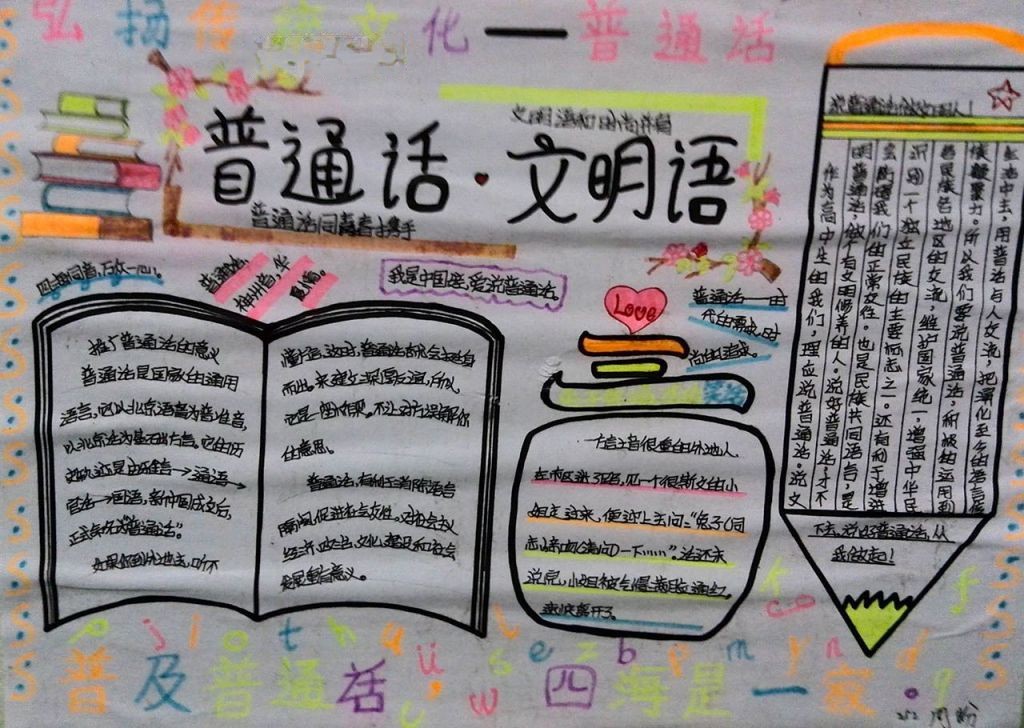 弘扬传统文化一普通话
文明语和时尚并肩
普通话·文明语
普通话同青春携手
四海同音,万众一心。
普通话,
神州音,华
夏情。
我是中国娃,爱说普通话。
推广普通话的意义
普通话是国家的通用
语言,它以北京语音为标准音,
以北方话为基础方言,
官话→国语,新中国成立后,
正式称为"普通话"。
如果你到外地去,听不
懂方言,这时,普通话就会挺身
而出,来建立深厚友谊,所以
也是一面镜,不让对方误解你
的意思。
普通话,有利于消除语言
隔阂,促进社会交往,对社会主义
经济、政治、文化、建设和社会
发展重要意义。
Love
普通话——时
代的需求,时
尚的追求。
一方言音很重的外地人,
在市区迷了路,见一个很斯文的小
姐走过来,便迎上去问:"兔子(同
志)亲吻(请问)一下……"。话还未
说完,小姐被气得满脸通红,
愤愤离开了。
说普通话做文明人!
作为高中生的我们,理应说普通话,说文
明普通话,做个有文明修养的人。说好普通话,才不
会阻碍我们的正常交往。也是民族共同语言,是
识别一个独立民族的主要标志之一。还有利于增进
各民族各地区的交流,维护国家统一,增强中华民
族凝聚力。所以我们要说普通话,积极的运用到
生活中去,用普通话与人交流,把演化至今的语言传
下去,说好普通话,从
我做起!
普及普通话 四海是一家。